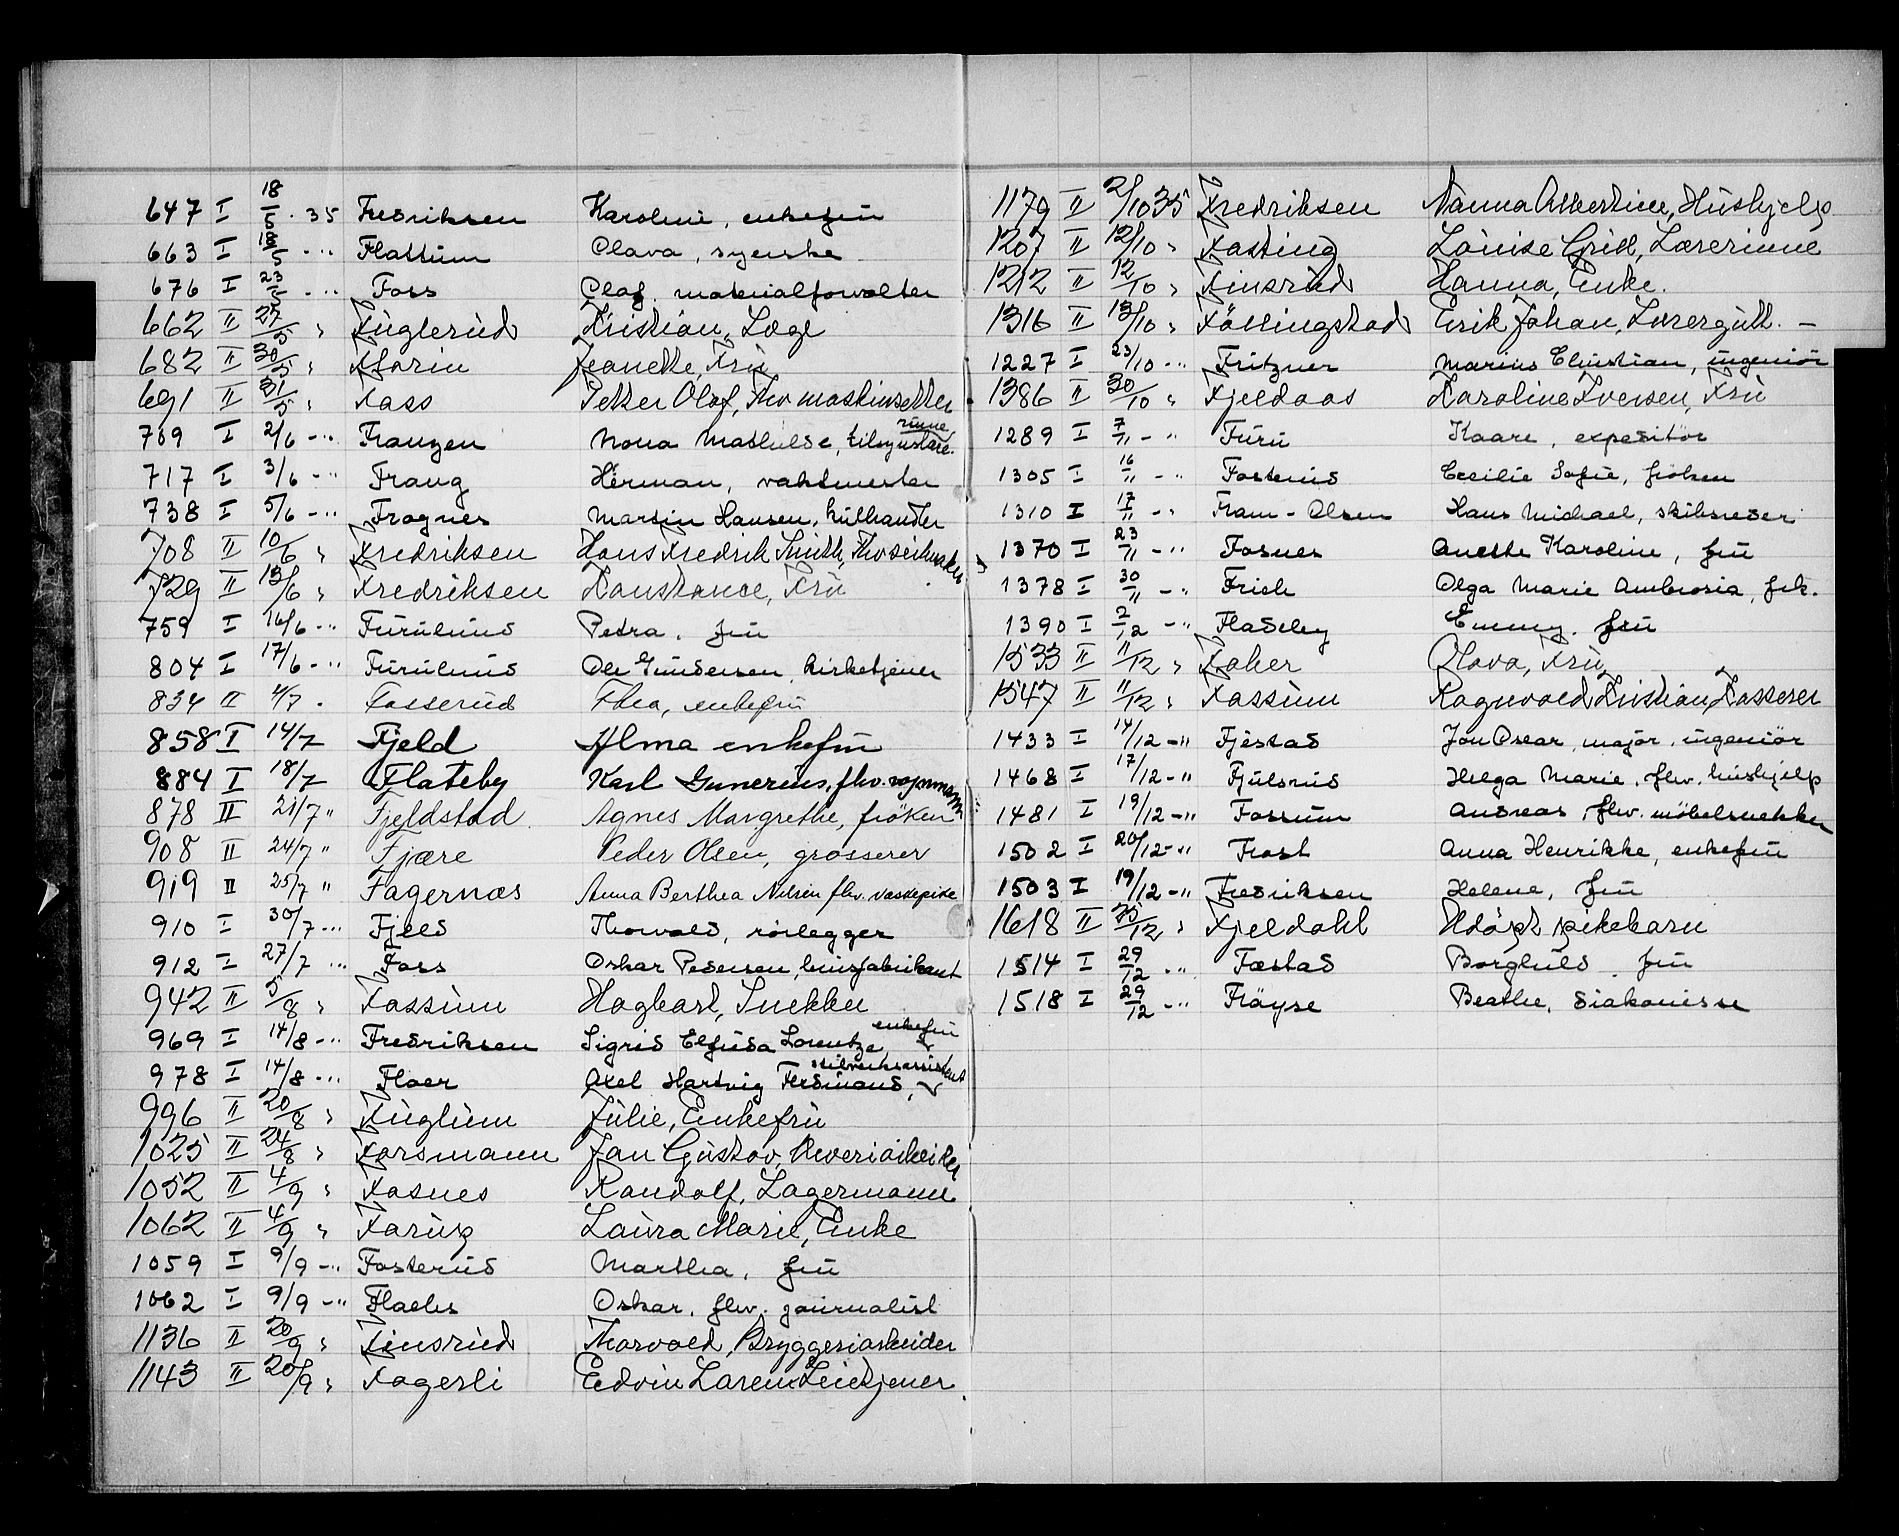 647 I 18/5 . 35 Fredriksen Karoline, enkefru
663 I 18/5 - " Flattum Olava, syerske
676 I 23/5 - " Foss Olaf, materialforvalter
662 II 27/5 " Fuglerud Kristian, Læge
682 II 30/5 " Florin Jeanette, Fru
691 II 31/5 " Foss Petter Olaf, Fhv maskinsetter
709 I 2/6 - " Franzen Nona Mathilde,
717 I 3/6 - " Frang Herman, vaktmester
738 I 5/6 - " Frogner Martin Hansen, kulhandler
708 II 10/6 " Fredriksen Hans Fredrik Smith, Fhv
729 II 13/6 " Fredriksen Konstance, Fru
759 I 16/6 - " Furulund Petra, fru
804 I 17/6 - " Furulund Ole Gundersen, kirketjener
834 II 4/7 . Fosserud Thea, enkefru
858 I 14/7 Fjeld Alma enkefru
884 I 18/7 Flateby Karl Gunerius, fhv. vognmann
878 II 21/7 " Fjeldstad Agnes Margrethe, fröken
908 II 24/7 " Fjære Peder Olsen, grosserer
919 II 25/7 " Fagernæs Anna Berthea Nilsen fhv. vaskepike
910 I 30/7 - " Fjeld Thorvald, rörlegger
912 I 27/7 " Foss Oskar Pedersen,
942 II 5/8 " Fossum Hagbart, Snekker
969 I 14/8 - " Fredriksen Sigrid Elfrida Lorentze enkefru
978 I 14/8 - " Floer Axel Hartvig Ferdinand,
996 II 20/8 " Fuglum Julie, Enkefru
1025 II 24/8 " Forsmann Jan Gustav,
1052 II 4/9 " Fosnes Randolf, Lagermann
1062 II 4/9 " Farup Laura Marie, Enke
1059 I 9/9 - " Fosterud Martha, fru
1062 I 9/9 - " Flaebs Oskar, fhv. journalist
1136 II 20/9 " Finsrud Thorvald, Bryggeriarbeider
1143 II 20/9 " Fagerli Edvin Larem
1179 II 2/10 35 Fredriksen Nanna Albertine, Hushjelp
1207 II 12/10 " Fasting Louise Grill, Lærerinne
1212 II 12/10 " Finsrud Hanna, Enke.
1316 II 13/10 " Föllingstad Erik Johan, Lærergutt. -
1227 I 23/10 - " Fritzner Marius Christian, ingeniör
1386 II 30/10 " Fjeldaas Karoline Iversen, Fru
1289 I 7/11 - " Furu Kaare, expeditör
1305 I 16/11 - " Fosterud Cecilie Sofie, fröken
1310 I 17/11 - " Fram - Olsen Hans Michael, skibsreder
1370 I 23/11 - " Fosnes Anethe Karoline, fru
1378 I 30/11 - " Frich Olga Marie Ambrosia, frk.
1390 I 2/12 - " Fladeby Emmy. fru
1533 II 11/12 " Faker Olava, Fru
1547 II 11/12 " Fossum Ragnvald Kristian, Kasserer
1433 I 14/12 - " Fjestad Jon Oscar, major, ingeniör
1468 I 17/12 - " Fjulsrud Helga Marie, fhv. hushjelp
1481 I 19/12 - " Fossum Andreas, fhv. möbelsnekker
1502 I 20/12 - " Frost Anna Henrikke, enkefru
1503 I 19/12 - " Fredriksen Helene, fru
1618 II 25/12 " Fjeldahl Udöpt pikebarn
1514 I 29/12 " Fæstad Borghild, fru
1518 I 29/12 - " Fröyse Beathe, diakonisse